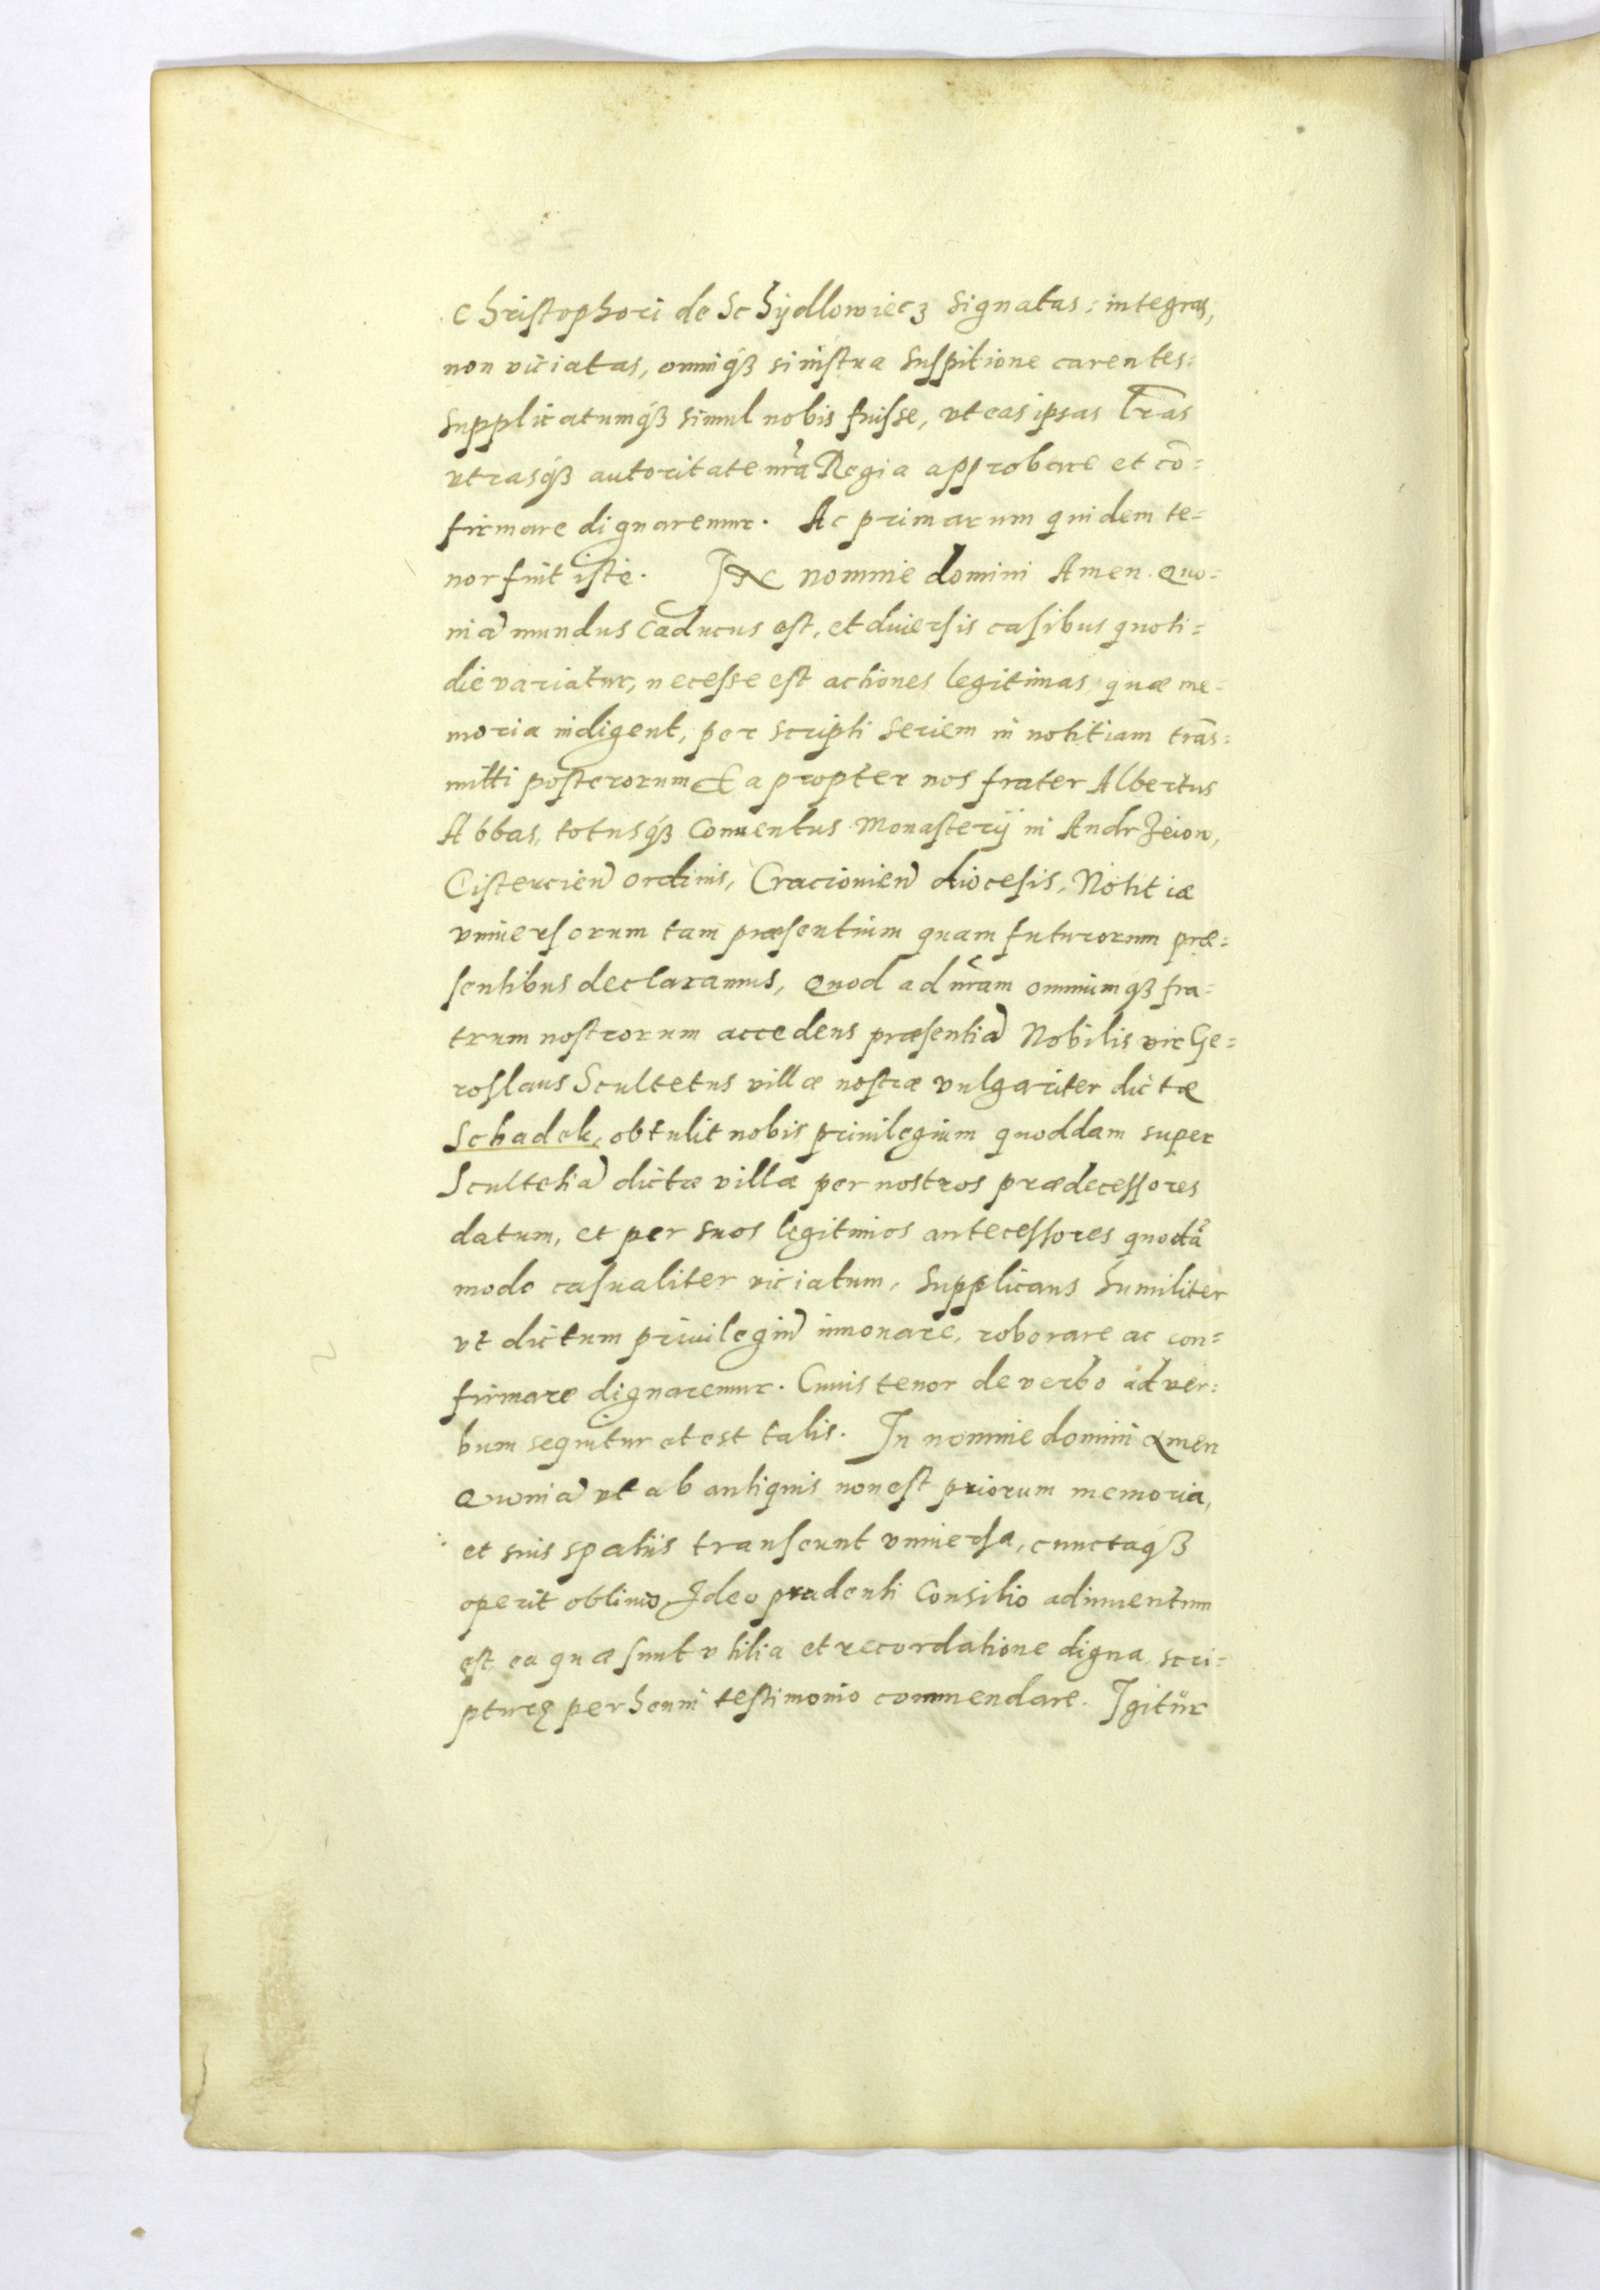 Christophori de Schÿdlowiecz signatas, integras,
non viciatas, omniq́ꝫ sinistra suspitione carentes:
supplicatumq́ꝫ simul nobis fuisse, vt eas ipsas l̃ras
vtrasq́ꝫ autoritate nr̃a Regia approbare et cõ=
firmare dignaremur. Ac primarum quidem te=
nor fuit iste. IN nomine domini Amen. Quo=
niã mundus caducus est, et diuersis casibus quoti=
die variatur, necesse est actiones legitimas, quæ me=
moria indigent, per scripti seriem in notitiam trãs=
mitti posterorum Ea propter nos frater Albertus
Abbas, totusq́ꝫ Conuentus Monasterij in Andrzeiow,
Cistercien̄ ordinis, Cracouien̄ diocesis, Notitiæ
vniuersorum tam præsentium quam futurorum præ=
sentibus declaramus, Quod ad nr̃am omniumq́ꝫ fra=
trum nostrorum accedens præsentiã Nobilis vir Ge=
roslaus Scultetus villæ nostræ vulgariter dictæ
Schadek, obtulit nobis priuilegium quoddam super
Scultetiã dictæ villæ per nostros prædecessores
datum, et per suos legitimos antecessores quodã
modo casualiter viciatum, supplicans humiliter
vt dictum priuilegiũ innouare, roborare ac con=
firmare dignaremur. Cuius tenor de verbo ad ver=
bum sequitur et est talis. In nomine domini Amen
Quoniã vt ab antiquis non est priorum memoria,
et suis spatiis transeunt vniuersa, cunctaq́ꝫ
operit obliuio, Ideo prudenti consilio adinuentum
est, ea quæ sunt vtilia et recordatione digna, scri=
pturę perhenni testimonio commendare. Igitur